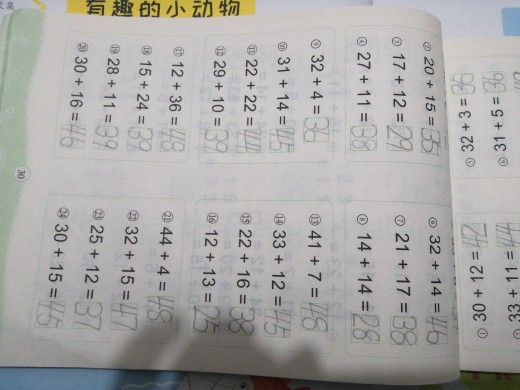 有趣的小动物
② 20 + 15 = 35
③ 17 + 12 = 29
④ 27 + 11 = 38
⑥ 32 + 14 = 46
⑦ 21 + 17 = 38
⑧ 14 + 14 = 28
⑨ 32 + 4 = 36
⑩ 31 + 14 = 45
⑪ 22 + 22 = 44
⑫ 29 + 10 = 39
⑬ 41 + 7 = 48
⑭ 33 + 12 = 45
⑮ 22 + 16 = 38
⑯ 12 + 13 = 25
⑰ 12 + 36 = 48
⑱ 15 + 24 = 39
⑲ 28 + 11 = 39
⑳ 30 + 16 = 46
㉑ 44 + 4 = 48
㉒ 32 + 15 = 47
㉓ 25 + 12 = 37
㉔ 30 + 15 = 45
30
⑤ 32 + 3 = 35
⑥ 31 + 5 = 36
30 + 12 = 42
33 + 11 = 44